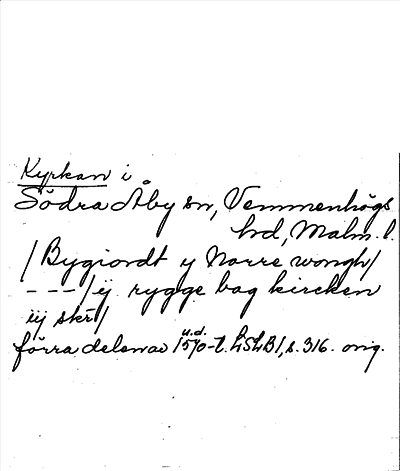 Kyrkan i
Södra Åby sn, Vemmenhögs
hrd, Malm. l.
/ Bygiordt y Norre wongh/
- - - /ÿ rygge bag kircken
iij skr/
förra delen av 1570-t. u.d. LSLB 1, s. 316. orig.